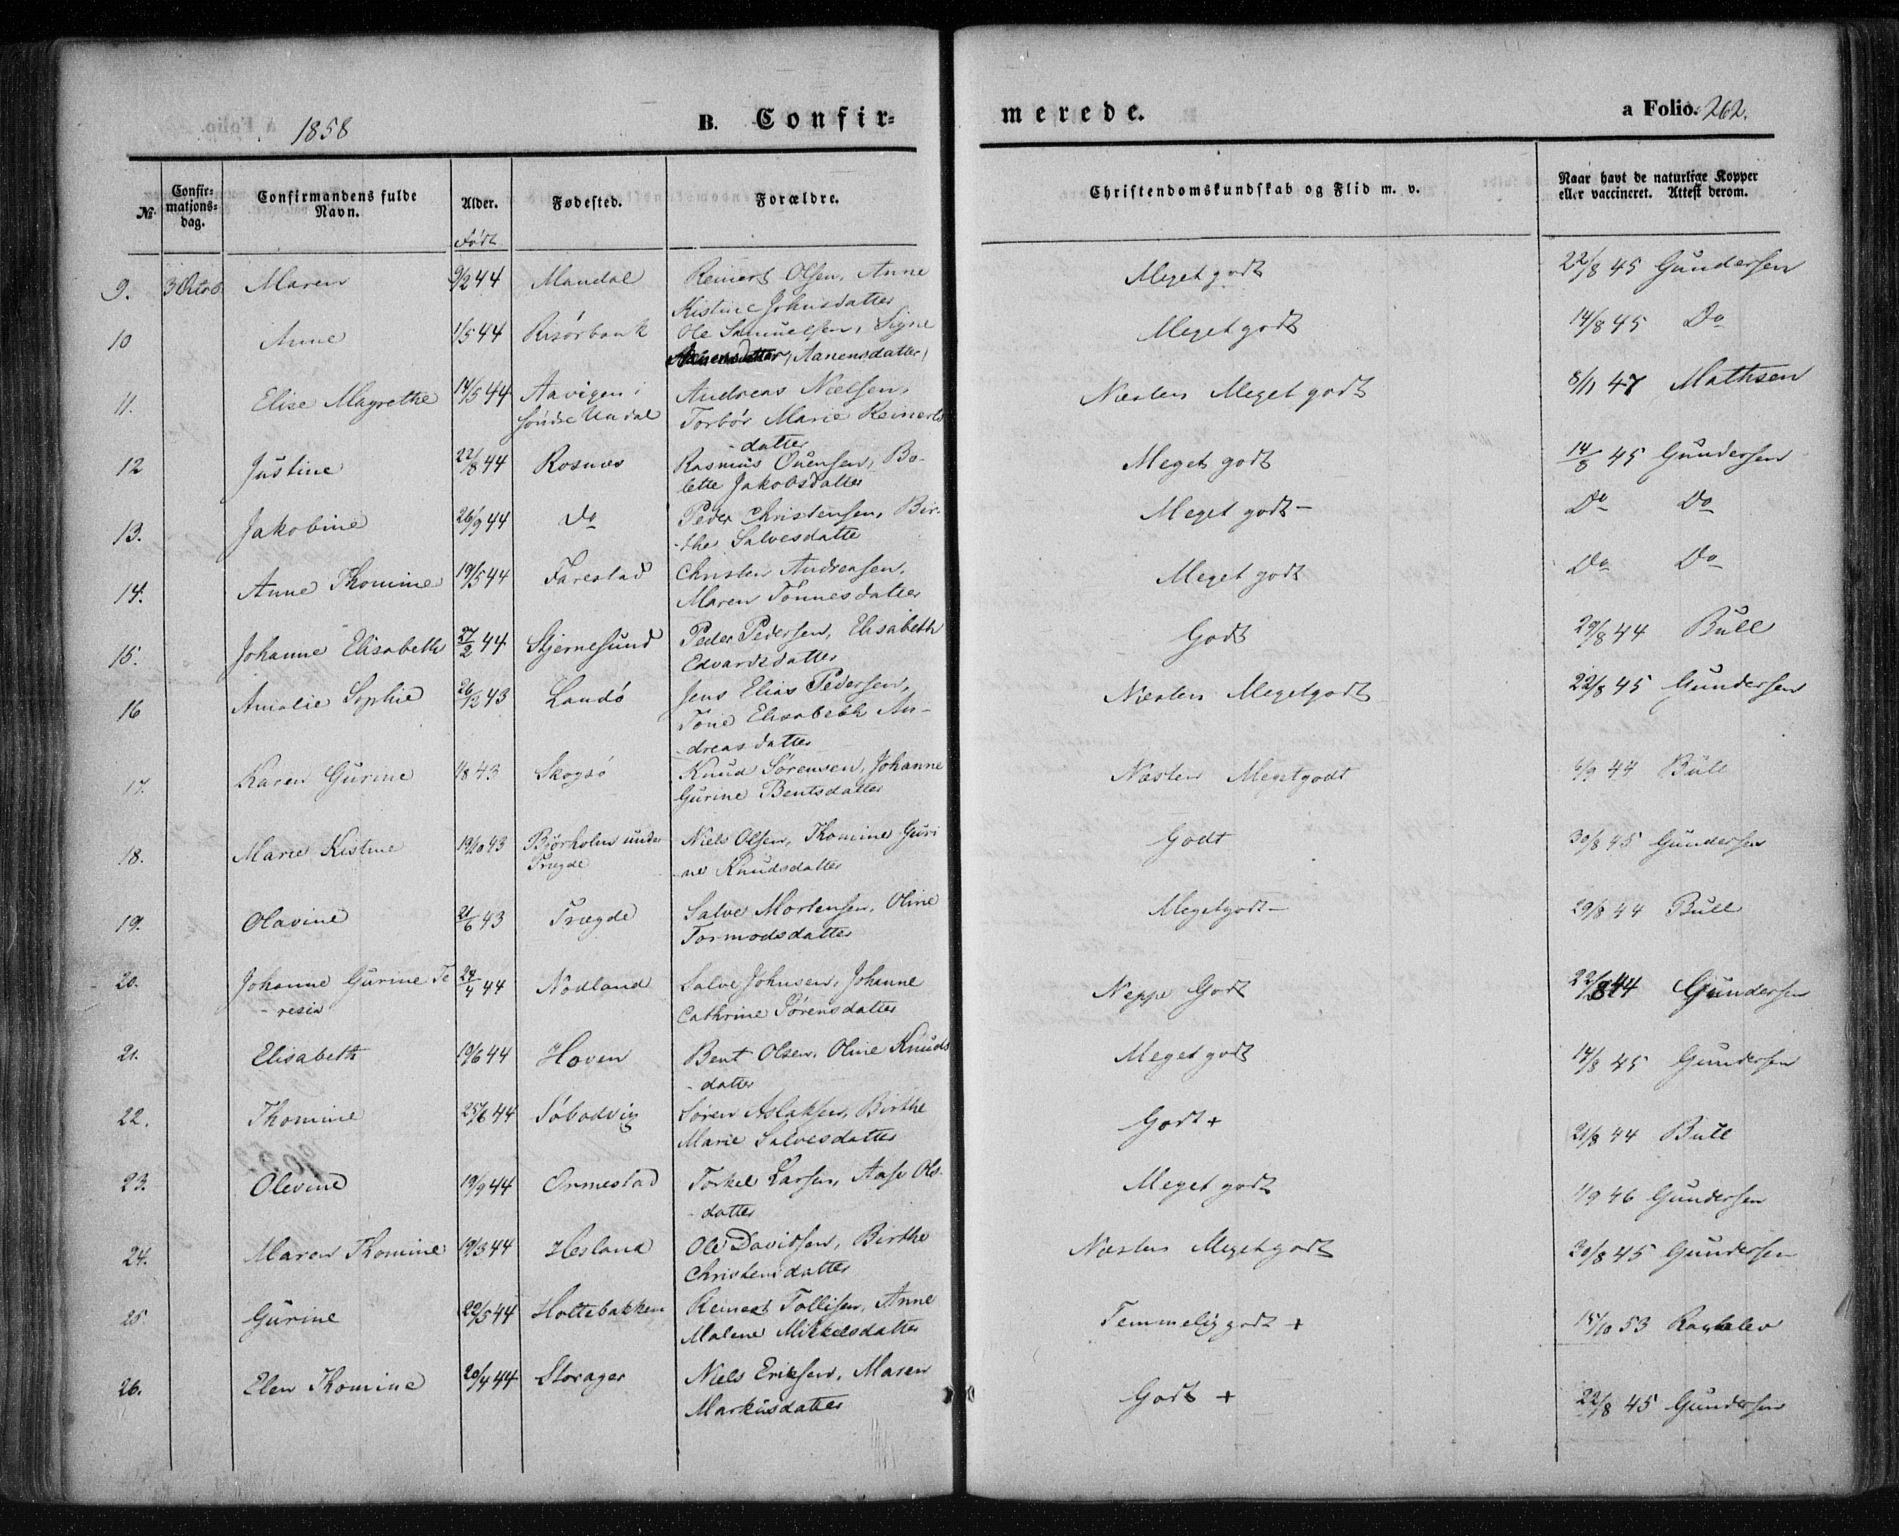 1858 B. Confir= merede. a Folio. 262.
№. Confir=mations=dag. Confirmandens fulde Navn. Alder. Fødested. Forældre. Christendomskundskab og Flid m. v. Naar havt de naturlige Kopper eller vaccineret. Attest derom.
Født
9. 3 Octob Maren 9/2 44 Mandal Reinert Olsen, Anne Meget godt 22/8 45 Gundersen
Kistine Johnsdatter
10 Anne 1/5 44 Risørbank Ole Samuelsen, Signe Meget godt 14/8 45 Do
Aanensdatter,
11. Elise Magrethe 14/5 44 Aavigen i Andreas Nielsen, Næsten Meget godt 8/11 47 Mathsen
søndre Undal Torbør Marie Reinerts
-datter
12 Justine 22/8 44 Rosnes Rasmus Ouensen, Bo- Meget godt 14/8 45 Gundersen
lette Jakobsdatter
13. Jakobine 26/9 44 Do Peder Christensen, Bir- Meget godt - Do Do
-the Salvesdatte
14. Anne Thomine 19/5 44 Farestad Christen Andreasen, Meget godt Do Do
Maren Tønnesdatter
15. Johanne Elisabeth 27/2 44 Stjernesund Peder Pedersen, Elisabeth Godt 29/8 44 Bull
Edvardsdatter
16 Amalie Sophie 26/12 43 Landø Jens Elias Pedersen, Næsten Megetgodt 22/8 45 Gundersen
Tone Elisabeth An-
-dreasdatter
17. Karen Gurine 1/8 43 Skogsø Knud Sørensen, Johanne Næsten Megetgodt 6/9 44 Bull
Gurine Bentsdatter
18. Marie Kistine 19/10 43 Bjørholm under Niels Olsen, Thomine Guri Godt 30/8 45 Gundersen
Trægde ne Knudsdatter
19. Olavine 21/6 43 Trægde Salve Mortensen, Oline Megetgodt - 29/8 44 Bull
Tormodsdatter
20. Johanne Gurine Te 24/4 44 Nodland Salve Johnsen, Johanne Neppe Godt 22/8 44 Gundersen
-resia Cathrine Sørensdatter
21. Elisabeth 19/6 44 Hoven Bent Olsen, Oline Knuds Meget godt 14/8 45 Gundersen
-datter
22. Thomine 25/6 44 Søbodvig Søren Aslaksen, Birthe Godt + 21/8 44 Bull
Marie Salvesdatter
23. Olevine 19/9 44 Ormestad Torkel Larsen, Aase Ols- Meget godt 1/9 46 Gundersen
-datter
24. Maren Thomine 19/3 44 Hesland Ole Davidsen, Birthe Næsten Megetgodt 30/8 45 Gundersen
Christensdatter
25 Gurine 22/5 44 Holtebakken Reinert Tollisen, Anne Temmelig godt + 15/10 53
Malene Mikkelsdatter
26. Elen Thomine 20/4 44 Storager Niels Eriksen, Maren Godt + 22/8 45 Gundersen
Markusdatter